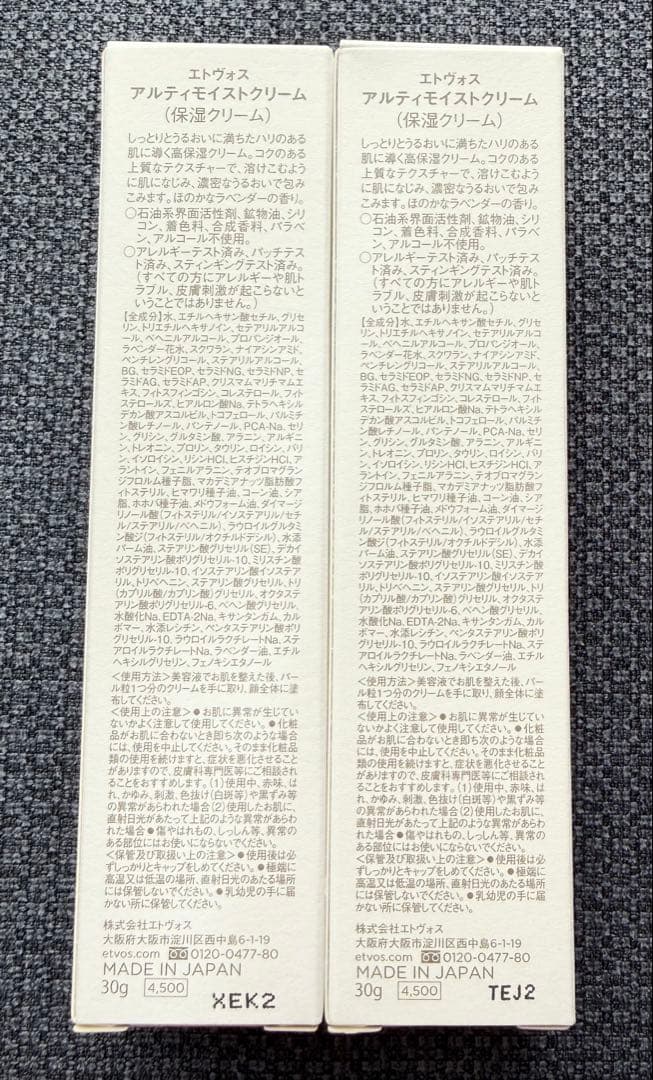 エトヴォス
アルティモイストクリーム
（保湿クリーム）
しっとりとうるおいに満ちたハリのある
肌に導く高保湿クリーム。コクのある
上質なテクスチャーで、溶けこむよう
に肌になじみ、濃密なうるおいで包み
こみます。ほのかなラベンダーの香り。
○石油系界面活性剤、鉱物油、シリ
コン、着色料、合成香料、パラベ
ン、アルコール不使用。
○アレルギーテスト済み、パッチテス
ト済み、スティンギングテスト済み。
（すべての方にアレルギーや肌ト
ラブル、皮膚刺激が起こらないと
いうことではありません。）
【全成分】水、エチルヘキサン酸セチル、グリセ
リン、トリエチルヘキサノイン、セテアリルアルコ
ール、ベヘニルアルコール、プロパンジオール、
ラベンダー花水、スクワラン、ナイアシンアミド、
ペンチレングリコール、ステアリルアルコール、
BG、セラミドEOP、セラミドNG、セラミドNP、セ
ラミドAG、セラミドAP、クリスマムマリチマムエ
キス、フィトスフィンゴシン、コレステロール、フィト
ステロールズ、ヒアルロン酸Na、テトラヘキシル
デカン酸アスコルビル、トコフェロール、パルミチ
ン酸レチノール、パンテノール、PCA-Na、セリ
ン、グリシン、グルタミン酸、アラニン、アルギニ
ン、トレオニン、プロリン、タウリン、ロイシン、バリ
ン、イソロイシン、リシンHCl、ヒスチジンHCl、ア
ラントイン、フェニルアラニン、テオブロマグラン
ジフロルム種子脂、マカデミアナッツ脂肪酸フ
ィトステリル、ヒマワリ種子油、コーン油、シア
脂、ホホバ種子油、メドウフォーム油、ダイマージ
リノール酸（フィトステリル/イソステアリル/セチ
ル/ステアリル/ベヘニル）、ラウロイルグルタミ
ン酸ジ（フィトステリル/オクチルドデシル）、水添
パーム油、ステアリン酸グリセリル（SE）、デカイ
ソステアリン酸ポリグリセリル-10、ミリスチン酸
ポリグリセリル-10、イソステアリン酸イソステア
リル、トリベヘニン、ステアリン酸グリセリル、トリ
（カプリル酸/カプリン酸）グリセリル、オクタステ
アリン酸ポリグリセリル-6、ベヘン酸グリセリル、
水酸化Na、EDTA-2Na、キサンタンガム、カル
ボマー、水添レシチン、ペンタステアリン酸ポリ
グリセリル-10、ラウロイルラクチレートNa、ステ
アロイルラクチレートNa、ラベンダー油、エチル
ヘキシルグリセリン、フェノキシエタノール
＜使用方法＞美容液でお肌を整えた後、パー
ル粒1つ分のクリームを手に取り、顔全体に塗
布してください。
＜使用上の注意＞●お肌に異常が生じてい
ないかよく注意して使用してください。●化粧
品がお肌に合わないとき即ち次のような場合
には、使用を中止してください。そのまま化粧品
類の使用を続けますと、症状を悪化させること
がありますので、皮膚科専門医等にご相談され
ることをおすすめします。（1）使用中、赤味、は
れ、かゆみ、刺激、色抜け（白斑等）や黒ずみ等
の異常があらわれた場合（2）使用したお肌に、
直射日光があたって上記のような異常があらわ
れた場合●傷やはれもの、しっしん等、異常の
ある部位にはお使いにならないでください。
＜保管及び取扱い上の注意＞●使用後は必
ずしっかりとキャップをしめてください。●極端に
高温又は低温の場所、直射日光のあたる場所
には保管しないでください。●乳幼児の手に届
かない所に保管してください。
株式会社エトヴォス
大阪府大阪市淀川区西中島6-1-19
etvos.com 0120-0477-80
MADE IN JAPAN
30g 4,500
XEK2
エトヴォス
アルティモイストクリーム
（保湿クリーム）
しっとりとうるおいに満ちたハリのある
肌に導く高保湿クリーム。コクのある
上質なテクスチャーで、溶けこむよう
に肌になじみ、濃密なうるおいで包み
こみます。ほのかなラベンダーの香り。
○石油系界面活性剤、鉱物油、シリ
コン、着色料、合成香料、パラベ
ン、アルコール不使用。
○アレルギーテスト済み、パッチテス
ト済み、スティンギングテスト済み。
（すべての方にアレルギーや肌ト
ラブル、皮膚刺激が起こらないと
いうことではありません。）
【全成分】水、エチルヘキサン酸セチル、グリセ
リン、トリエチルヘキサノイン、セテアリルアルコ
ール、ベヘニルアルコール、プロパンジオール、
ラベンダー花水、スクワラン、ナイアシンアミド、
ペンチレングリコール、ステアリルアルコール、
BG、セラミドEOP、セラミドNG、セラミドNP、セ
ラミドAG、セラミドAP、クリスマムマリチマムエ
キス、フィトスフィンゴシン、コレステロール、フィト
ステロールズ、ヒアルロン酸Na、テトラヘキシル
デカン酸アスコルビル、トコフェロール、パルミチ
ン酸レチノール、パンテノール、PCA-Na、セリ
ン、グリシン、グルタミン酸、アラニン、アルギニ
ン、トレオニン、プロリン、タウリン、ロイシン、バリ
ン、イソロイシン、リシンHCl、ヒスチジンHCl、ア
ラントイン、フェニルアラニン、テオブロマグラン
ジフロルム種子脂、マカデミアナッツ脂肪酸フ
ィトステリル、ヒマワリ種子油、コーン油、シア
脂、ホホバ種子油、メドウフォーム油、ダイマージ
リノール酸（フィトステリル/イソステアリル/セチ
ル/ステアリル/ベヘニル）、ラウロイルグルタミ
ン酸ジ（フィトステリル/オクチルドデシル）、水添
パーム油、ステアリン酸グリセリル（SE）、デカイ
ソステアリン酸ポリグリセリル-10、ミリスチン酸
ポリグリセリル-10、イソステアリン酸イソステア
リル、トリベヘニン、ステアリン酸グリセリル、トリ
（カプリル酸/カプリン酸）グリセリル、オクタステ
アリン酸ポリグリセリル-6、ベヘン酸グリセリル、
水酸化Na、EDTA-2Na、キサンタンガム、カル
ボマー、水添レシチン、ペンタステアリン酸ポリ
グリセリル-10、ラウロイルラクチレートNa、ステ
アロイルラクチレートNa、ラベンダー油、エチル
ヘキシルグリセリン、フェノキシエタノール
＜使用方法＞美容液でお肌を整えた後、パー
ル粒1つ分のクリームを手に取り、顔全体に塗
布してください。
＜使用上の注意＞●お肌に異常が生じてい
ないかよく注意して使用してください。●化粧
品がお肌に合わないとき即ち次のような場合
には、使用を中止してください。そのまま化粧品
類の使用を続けますと、症状を悪化させること
がありますので、皮膚科専門医等にご相談され
ることをおすすめします。（1）使用中、赤味、は
れ、かゆみ、刺激、色抜け（白斑等）や黒ずみ等
の異常があらわれた場合（2）使用したお肌に、
直射日光があたって上記のような異常があらわ
れた場合●傷やはれもの、しっしん等、異常の
ある部位にはお使いにならないでください。
＜保管及び取扱い上の注意＞●使用後は必
ずしっかりとキャップをしめてください。●極端に
高温又は低温の場所、直射日光のあたる場所
には保管しないでください。●乳幼児の手に届
かない所に保管してください。
株式会社エトヴォス
大阪府大阪市淀川区西中島6-1-19
etvos.com 0120-0477-80
MADE IN JAPAN
30g 4,500
TEJ2